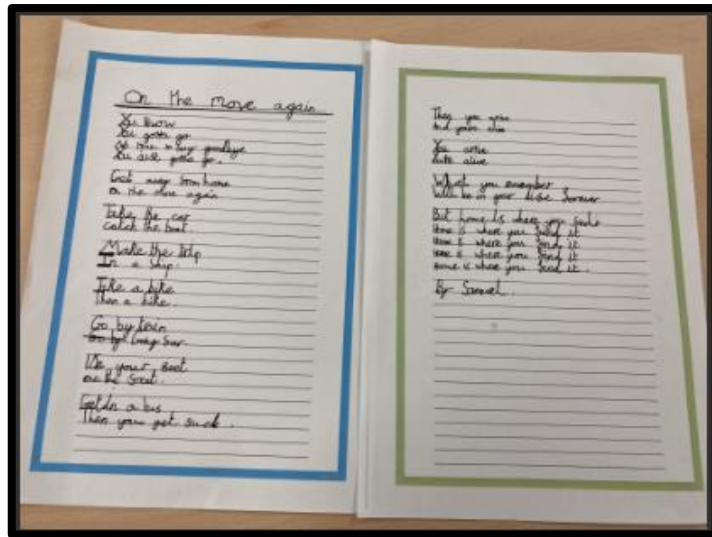 On the move again
You know
You gotta go
no time to say goodbye
You just gotta go.
Get away from home
on the move again
Take the car
catch the boat.
Make the trip
In a ship.
Take a bike
Then a hike.
Go by train
Going far.
Use your feet
on the street.
Get in a bus
Then you get stuck.
Then you arrive
And you're alive
You arrive
alive
What you remember
Will be in your forever
But home is where you find
Home is where you find it
Home is where you find it
Home is where you find it
Home is where you find it.
By Samuel.